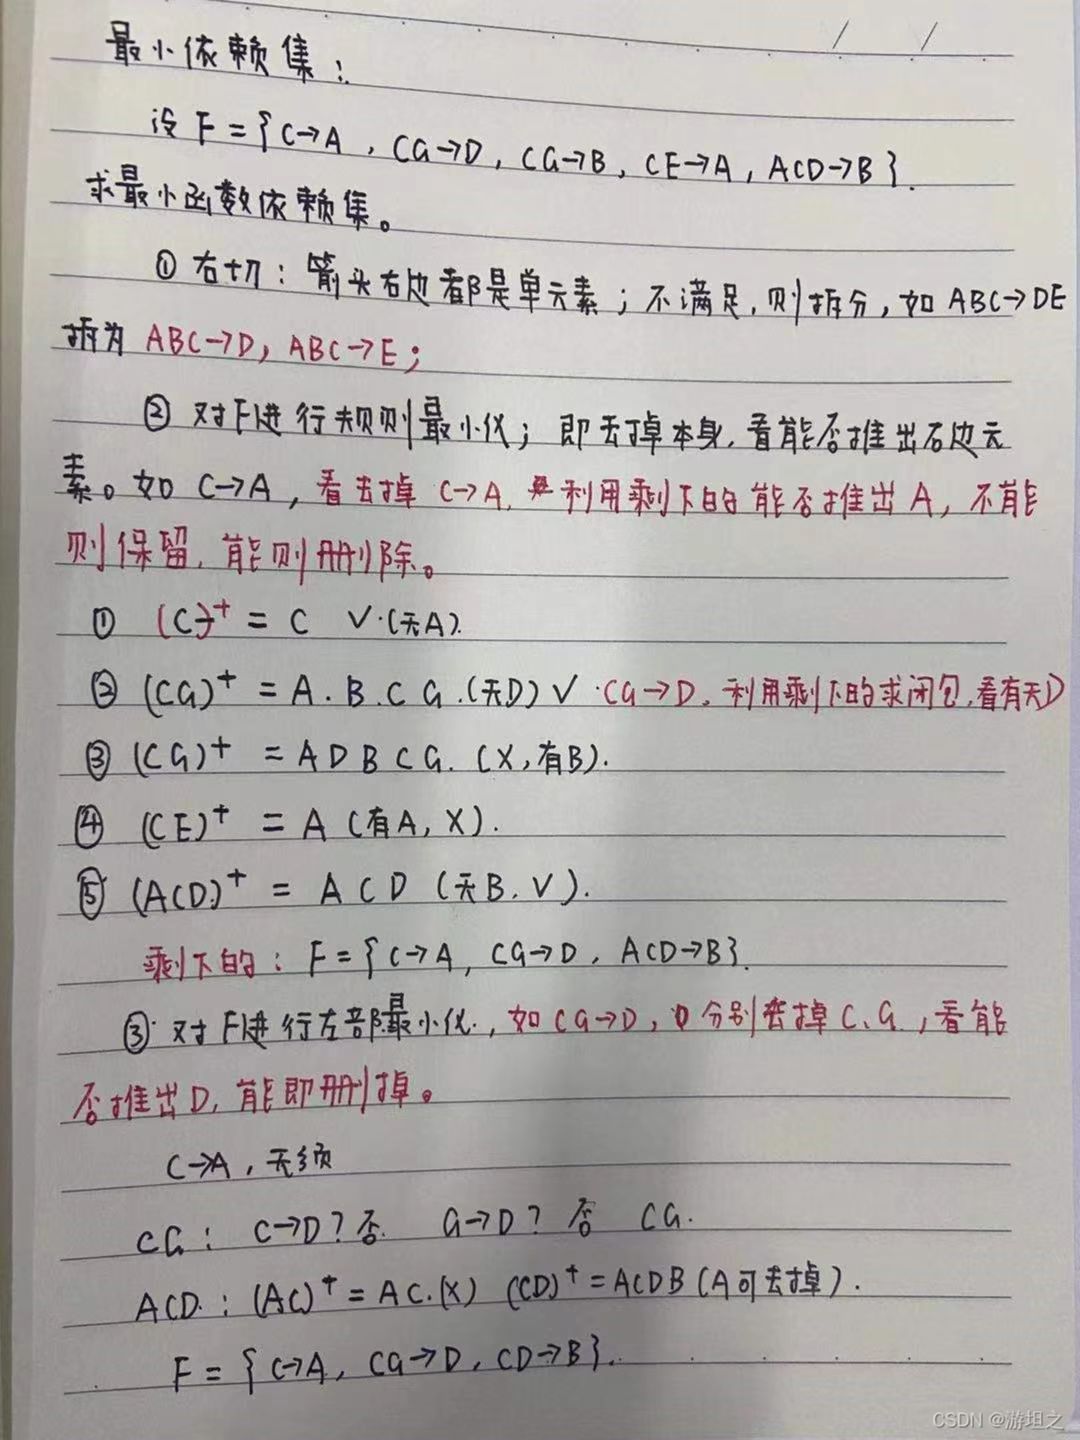 最小依赖集:
设 F={C→A, CG→D, CG→B, CE→A, ACD→B}.
求最小函数依赖集。
① 右切: 箭头右边都是单元素; 不满足, 则拆分, 如 ABC→DE
拆为 ABC→D, ABC→E;
② 对F进行规则最小化; 即去掉本身, 看能否推出右边元
素。如 C→A, 看去掉 C→A, 利用剩下的能否推出 A, 不能
则保留, 能则删除。
① (C)+ = C √.(无A).
② (CG)+ = A.B.C G.(无D) √ .CG→D, 利用剩下的求闭包,看有无D
③ (CG)+ = A D B C G. (X,有B).
④ (CE)+ = A (有A, X).
⑤ (ACD)+ = A C D (无B. √).
剩下的: F={C→A, CG→D, ACD→B}.
③ 对F进行左部最小化., 如 CG→D, 分别去掉 C、G, 看能
否推出D, 能即删掉。
C→A, 无须
CG: C→D? 否. G→D? 否 CG.
ACD.: (AC)+ = AC.(X) (CD)+ = ACDB (A可去掉).
F={C→A, CG→D, CD→B}.
CSDN @游坦之